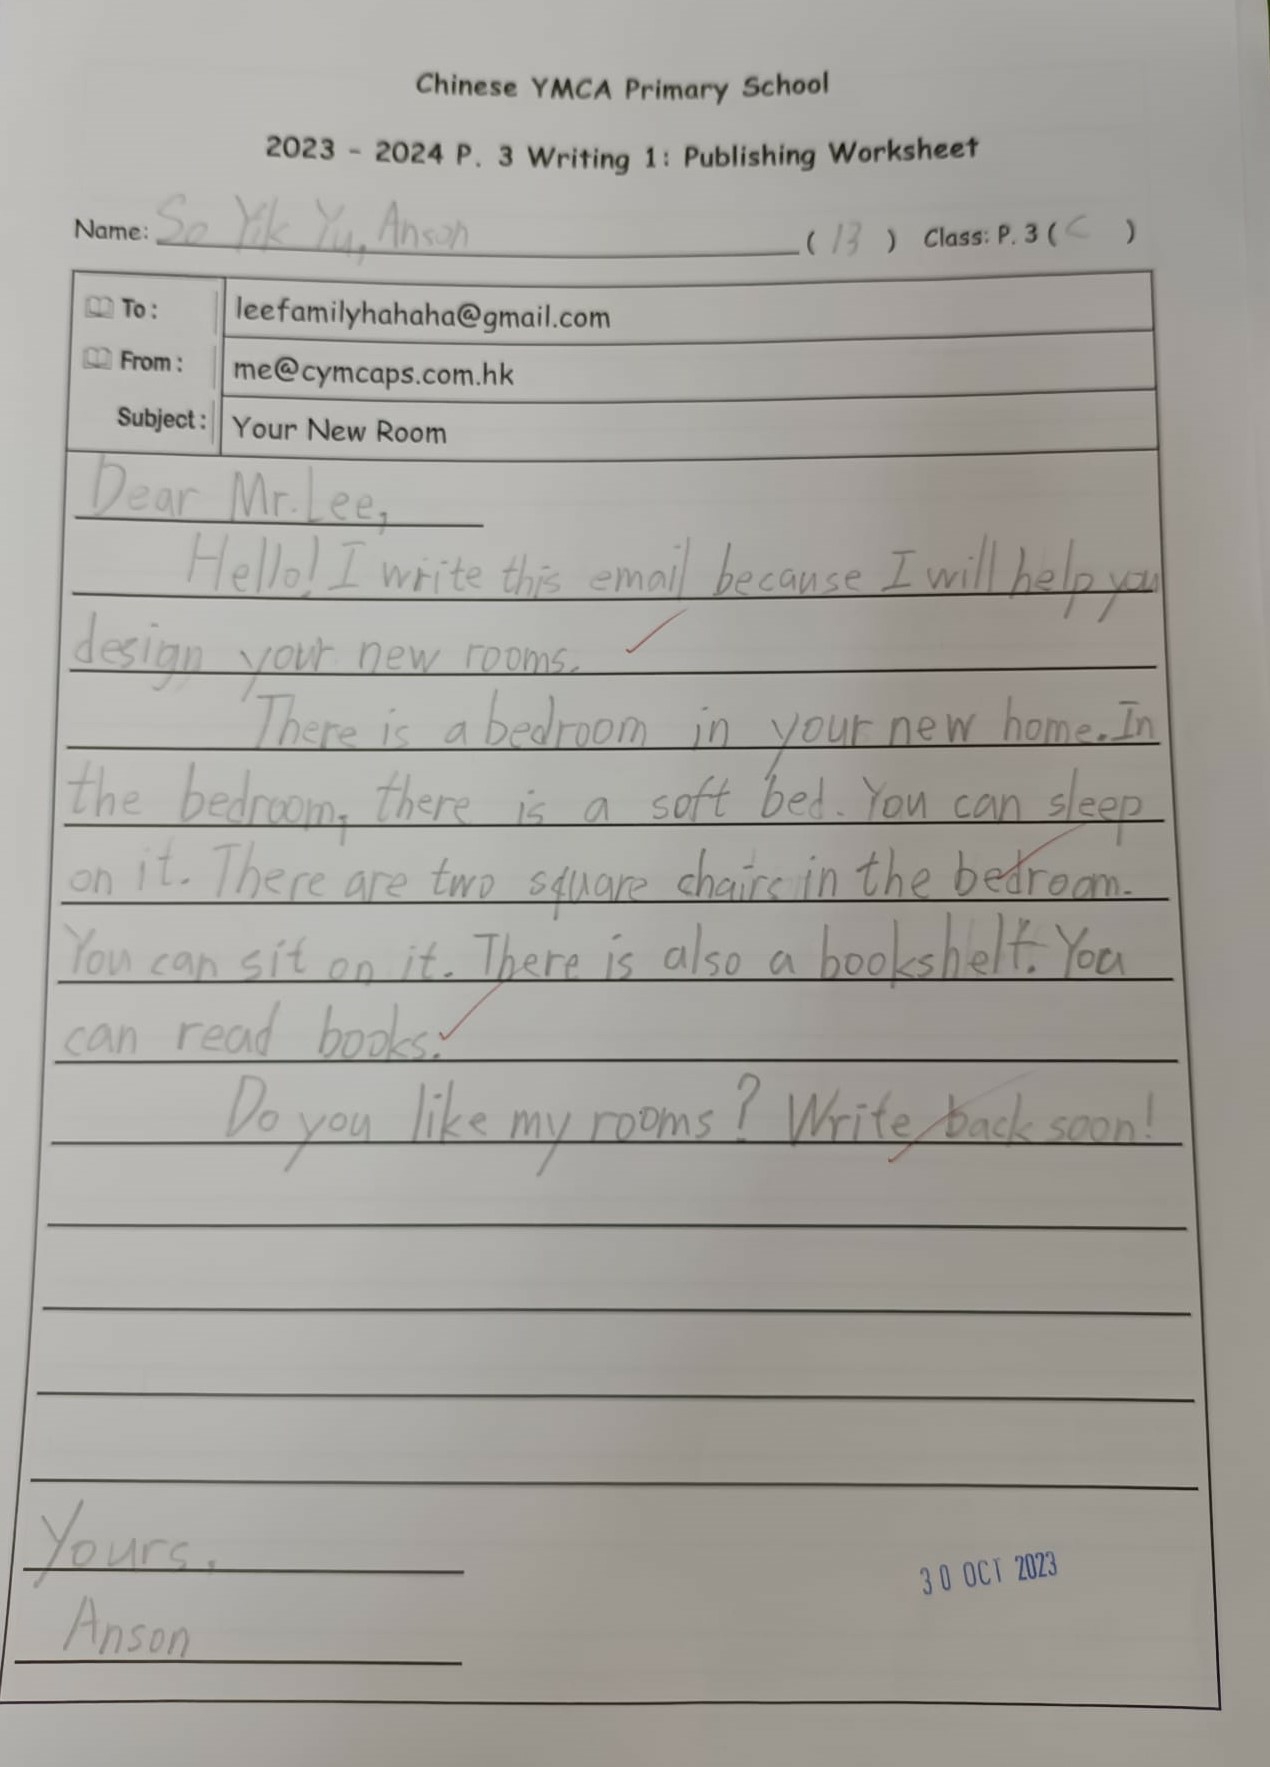 Chinese YMCA Primary School
2023 - 2024 P. 3 Writing 1: Publishing Worksheet
Name: So Yik Yu, Anson ( 13 ) Class: P. 3 ( C )
To: leefamilyhahaha@gmail.com
From: me@cymcaps.com.hk
Subject: Your New Room
Dear Mr. Lee,
Hello! I write this email because I will help you
design your new rooms.
There is a bedroom in your new home. In
the bedroom, there is a soft bed. You can sleep
on it. There are two square chairs in the bedroom.
You can sit on it. There is also a bookshelf. You
can read books.
Do you like my rooms? Write back soon!
Yours,
Anson
30 OCT 2023